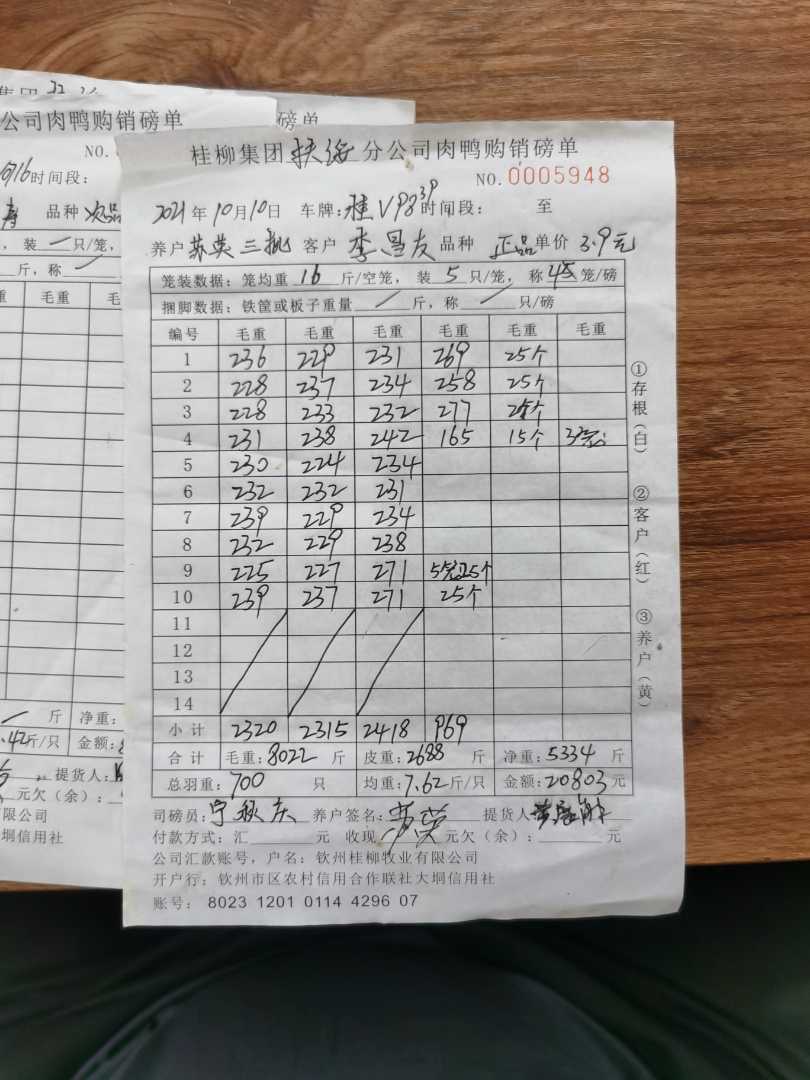 集团
公司肉鸭购销磅单
磅单
NO.
时间段:
品种 次品
装 一 只/笼,
斤,称 一
重 毛重 毛
斤 净重:
.42斤/只 金额:
提货人:
元欠(余):
限公司
大垌信用社
桂柳集团 分公司肉鸭购销磅单
NO. 0005948
2021年10月10日 车牌:桂V9839 时间段: 至
养户 苏英三批 客户 李昌友 品种 正品 单价 3.9元
笼装数据:笼均重 16 斤/空笼,装 5 只/笼,称 4或5 笼/磅
捆脚数据:铁筐或板子重量 / 斤,称 / 只/磅
编号 毛重 毛重 毛重 毛重 毛重 毛重
1 236 229 231 269 25个
2 228 237 234 258 25个
3 228 233 232 277 个
4 231 238 242 165 15个 3笼
5 230 224 234
6 232 232 231
7 239 229 234
8 232 229 238
9 225 227 271 5笼25个
10 239 237 271 25个
11
12
13
14
小计 2320 2315 2418 969
合计 毛重:8022 斤 皮重:2688 斤 净重:5334 斤
总羽重:700 只 均重:7.62斤/只 金额:20803元
司磅员:宁秋庆 养户签名:苏英 提货人
付款方式:汇 元 收现 元欠(余): 元
公司汇款账号,户名:钦州桂柳牧业有限公司
开户行:钦州市区农村信用合作联社大垌信用社
账号: 8023 1201 0114 4296 07
①存根(白)
②客户(红)
③养户(黄)